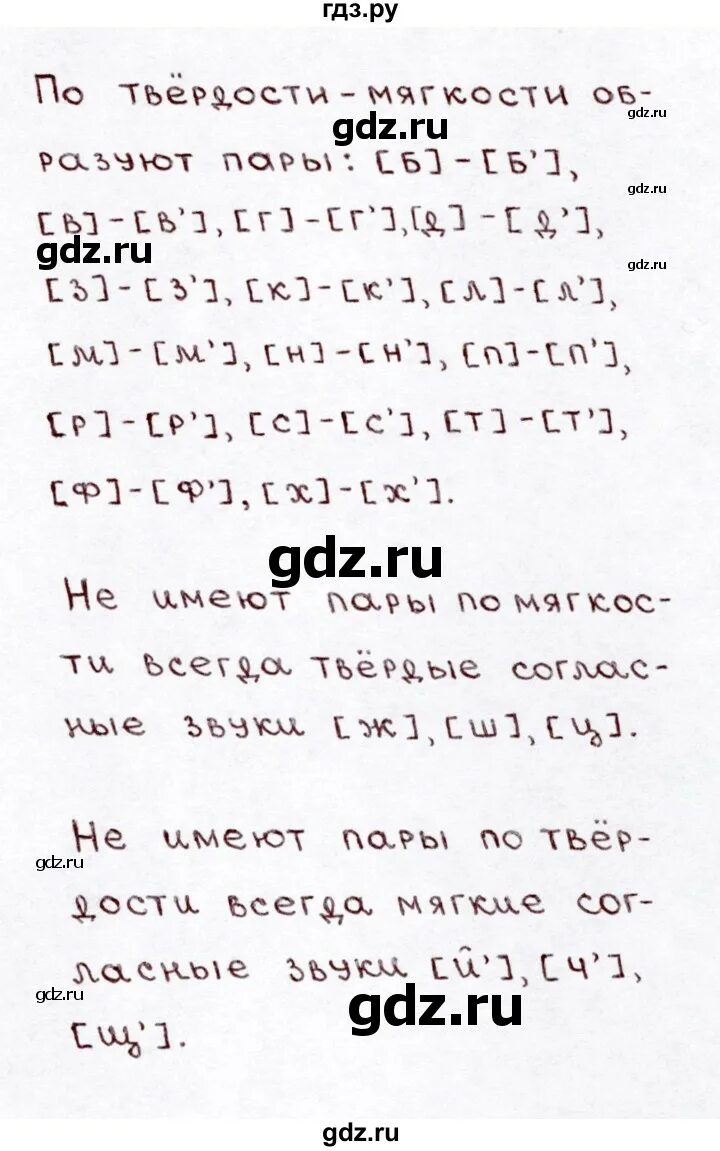 гдз.ру
По твёрдости-мягкости об-
gdz.ru
gdz.ru
разуют пары: [б]-[б'],
gdz.ru
[в]-[в'], [г]-[г'], [д]-[д'],
gdz.ru
gdz.ru
[з]-[з'], [к]-[к'], [л]-[л'],
[м]-[м'], [н]-[н'], [п]-[п'],
[р]-[р'], [с]-[с'], [т]-[т'],
[ф]-[ф'], [х]-[х'].
gdz.ru
Не имеют пары по мягкос-
ти всегда твёрдые соглас-
ные звуки [ж], [ш], [ц].
Не имеют пары по твёр-
gdz.ru
дости всегда мягкие сог-
ласные звуки [й'], [ч'],
gdz.ru
gdz.ru
[щ'].
gdz.ru